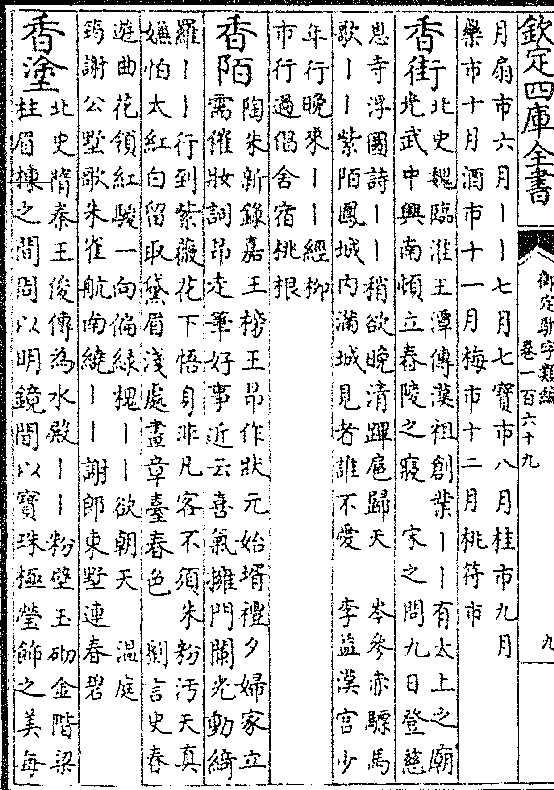 欽定四庫全書
御定駢字類編
卷一百六十九
九
月扇市六月丨丨七月七寶市八月桂市九月
藥市十月酒市十一月梅市十二月桃符市
香街
北史魏臨淮王潭傳漢祖創業丨丨有太上之廟
光武中興南頓立舂陵之寢 宋之問九日登慈
恩寺浮圖詩丨丨稍欲晚清蹕扈歸天 岑參赤驃馬
歌丨丨紫陌鳳城内滿城見者誰不愛 李益漢宮少
年行晚來丨丨經柳
市行過倡舍宿桃根
香陌
陶朱新錄嘉王榜王昂作狀元始壻禮夕婦家立
需催妝詞昂走筆好事近云喜氣擁門闌光動綺
羅丨丨行到紫薇花下悟身非凡客不須朱粉污天真
嫌怕太紅白留取黛眉淺處畫章臺春色 劉言史春
遊曲花領紅騣一向偏綠槐丨丨欲朝天 溫庭
筠謝公墅歌朱雀航南繞丨丨謝郎東墅連春碧
香塗
北史隋秦王俊傳為水殿丨丨粉壁玉砌金階梁
柱眉棟之間周以明鏡間以寶珠極瑩飾之美每